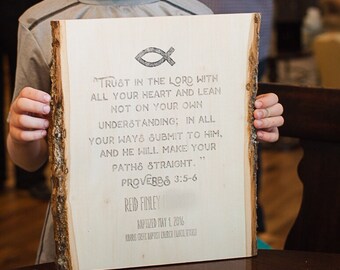 "Trust in the Lord with
all your heart and lean
not on your own
understanding; in all
your ways submit to him,
and he will make your
paths straight."
Proverbs 3:5-6
Reid Finley
Baptized May 1, 2016
Baptist Church